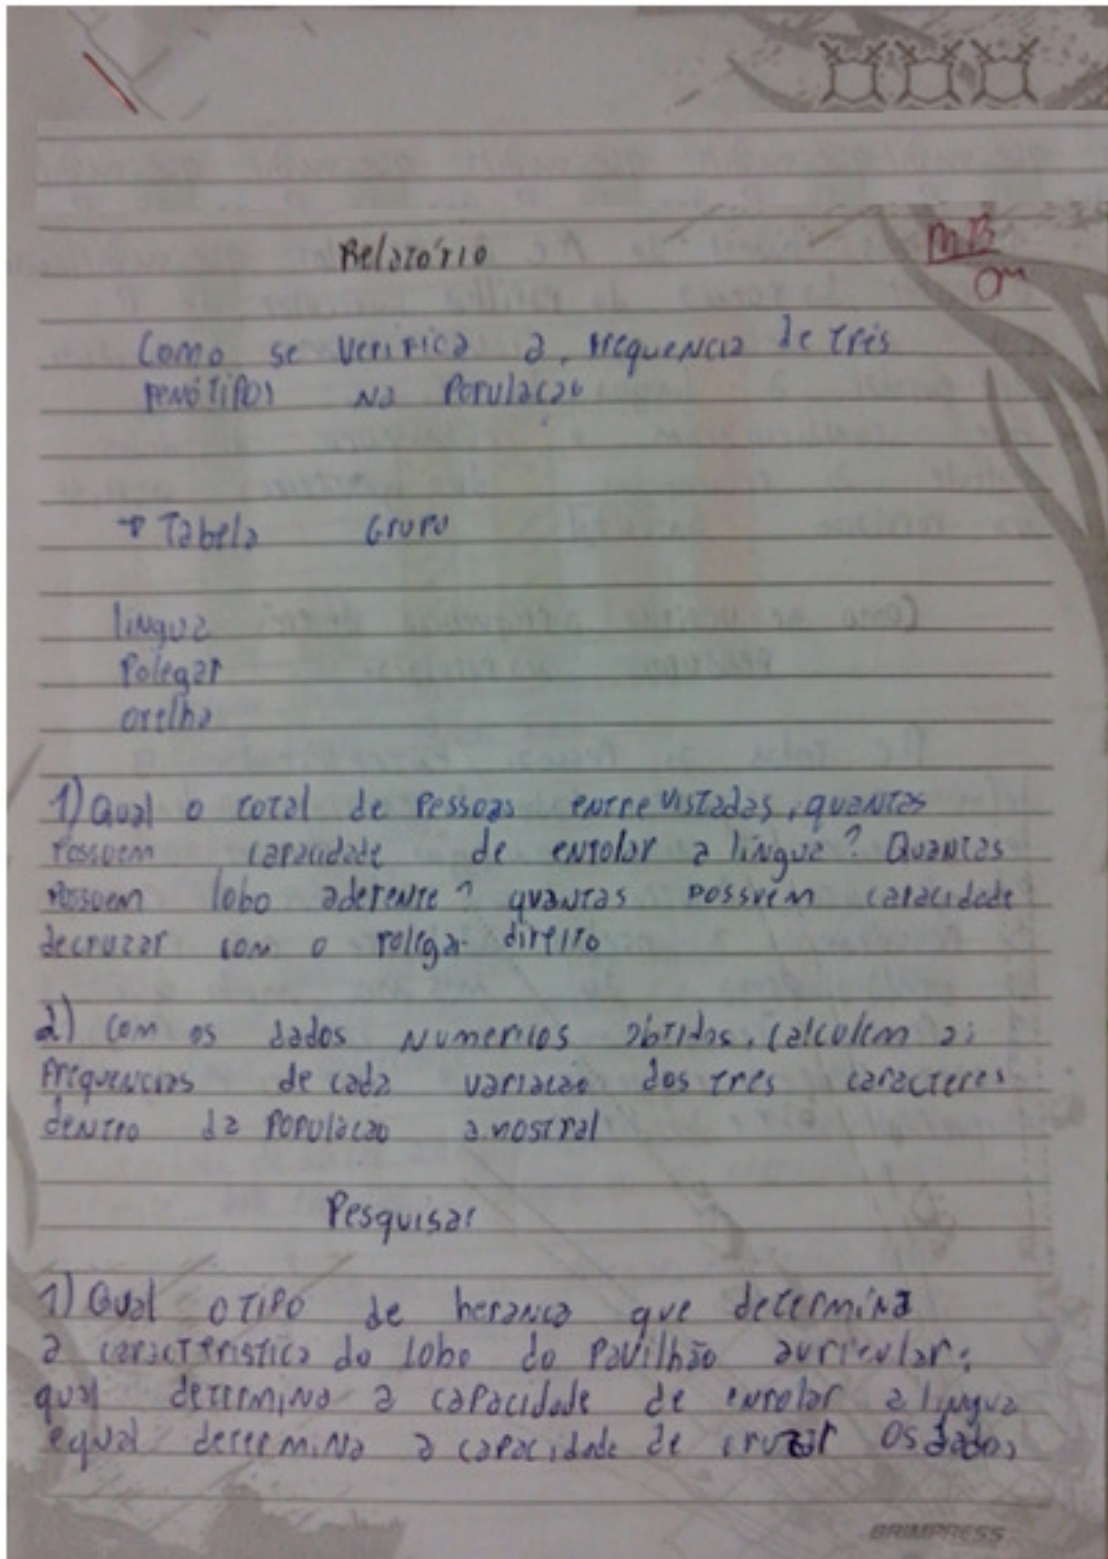 Relatório
MB
Como se verifica a frequencia de três
fenótipos na População
→ Tabela Grupo
lingua
Polegar
orelha
1) Qual o total de Pessoas entrevistadas, quantas
Possuem capacidade de enrolar a língua? Quantas
Possuem lobo aderente? quantas possuem capacidade
decruzar com o polegar direito
2) Com os dados numericos obtidos, calculem as
frequencias de cada variacao dos tres caracteres
dentro da Populacao amostral
Pesquisar
1) Qual o TiPo de heranca que determina
a caracteristica do lobo do Pavilhão auricular;
qual determina a capacidade de enrolar a lingua
equal determina a capacidade de cruzar os dados
BRIMPRESS